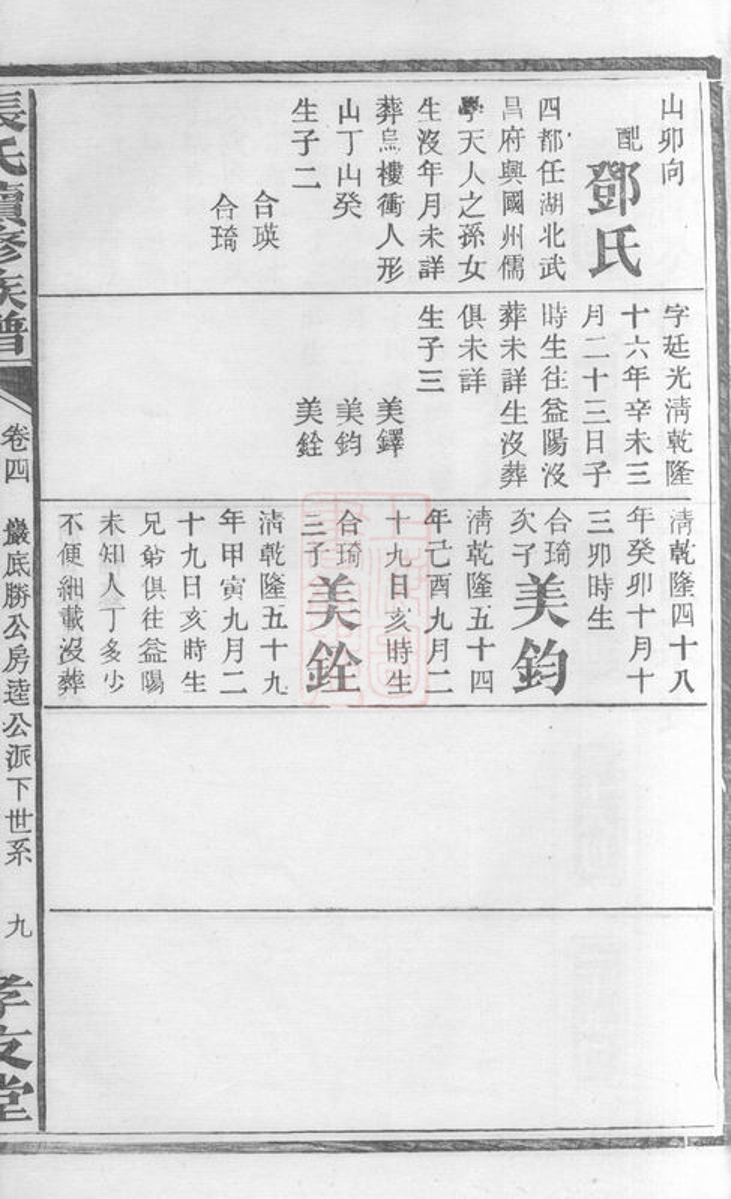 山卯向
配
鄧氏
四都任湖北武
昌府興國州儒
學天人之孫女
生沒年月未詳
葬烏樓衝人形
山丁山癸
生子二
合瑛
合琦
字廷光淸乾隆
十六年辛未三
月二十三日子
時生往益陽沒
葬未詳生沒葬
俱未詳
生子三
美鐸
美鈞
美銓
淸乾隆四十八
年癸卯十月十
三卯時生
合琦
次子
美鈞
淸乾隆五十四
年己酉九月二
十九日亥時生
合琦
三子
美銓
淸乾隆五十九
年甲寅九月二
十九日亥時生
兄弟俱往益陽
未知人丁多少
不便細載沒葬
張氏續修族譜
卷四
巖底勝公房逵公派下世系
九
孝友堂